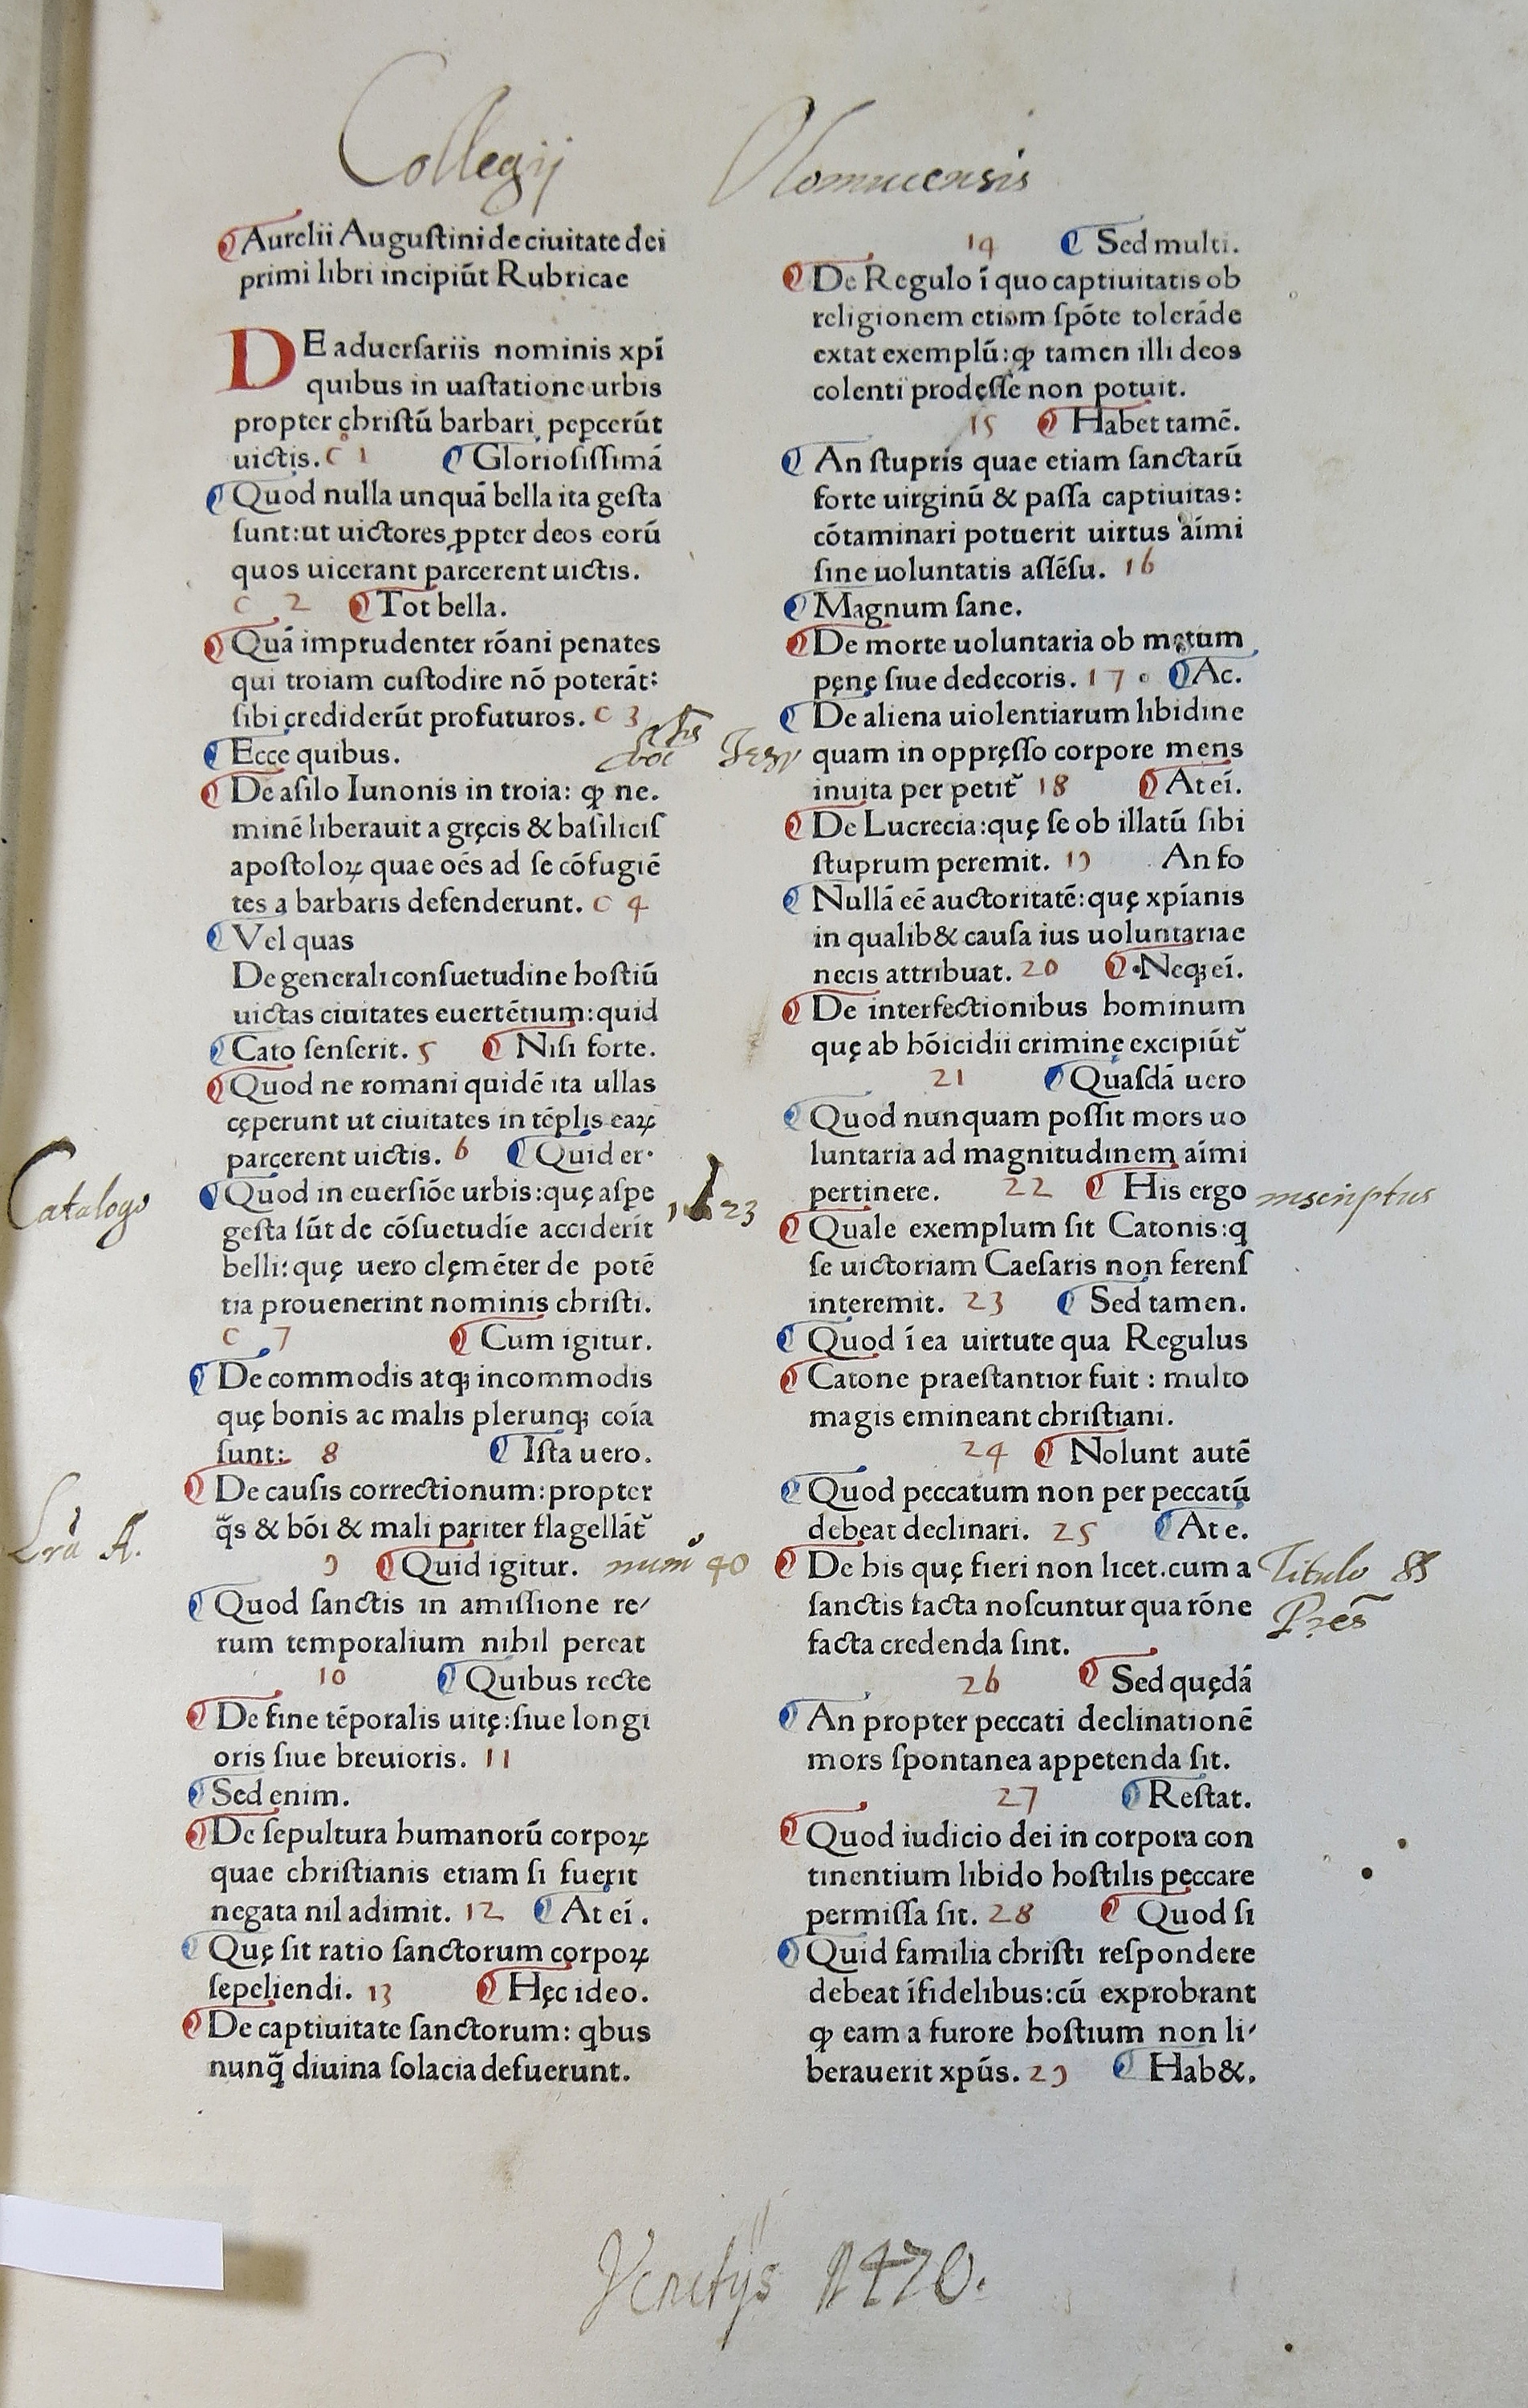 Collegij Olomucensis
Aurelii Augustini de ciuitate dei
primi libri incipiūt Rubricae
DE aduersariis nominis xpī
quibus in uastatione urbis
propter christū barbari pepcerūt
uictis. C 1 Gloriosissimā
Quod nulla unquā bella ita gesta
sunt:ut uictores ꝓpter deos eorū
quos uicerant parcerent uictis.
C 2 Tot bella.
Quā imprudenter rōani penates
qui troiam custodire nō poterāt:
sibi crediderūt profuturos. C 3
Ecce quibus.
De asilo Iunonis in troia: ꝙ ne.
minē liberauit a gręcis & basilicis
apostoloꝝ quae oēs ad se cōfugiē
tes a barbaris defenderunt. C 4
Vel quas
De generali consuetudine hostiū
uictas ciuitates euertētium:quid
Cato senserit. 5 Nisi forte.
Quod ne romani quidē ita ullas
cęperunt ut ciuitates in tēplis eaꝝ
parcerent uictis. 6 Quid er.
Quod in euersiōe urbis:quę aspe
gesta sūt de cōsuetudīe acciderīt
belli:quę uero clęmēter de potē
tia prouenerint nominis christi.
C 7 Cum igitur.
De commodis atqꝫ incommodis
quę bonis ac malis plerunqꝫ coīa
sunt: 8 Ista uero.
De causis correctionum:propter
q̄s & bōi & mali pariter flagellāt᷑
9 Quid igitur.
Quod sanctis in amissione re/
rum temporalium nihil pereat
10 Quibus recte
De fine tēporalis uitę:siue longi
oris siue breuioris. 11
Sed enim.
De sepultura humanorū corpoꝝ
quae christianis etiam si fuerit
negata nil adimit. 12 At eī.
Quę sit ratio sanctorum corpoꝝ
sepeliendi. 13 Hęc ideo.
De captiuitate sanctorum: qbus
nunq̄ diuina solacia defuerunt.
14 Sed multi.
De Regulo ī quo captiuitatis ob
religionem etiam spōte tolerāde
extat exemplū:ꝙ tamen illi deos
colenti prodęsse non potuit.
15 Habet tamē.
An stupris quae etiam sanctarū
forte uirginū & passa captiuitas:
cōtaminari potuerit uirtus aīmi
sine uoluntatis assēsu. 16
Magnum sane.
De morte uoluntaria ob metum
pęnę siue dedecoris. 17 Ac.
De aliena uiolentiarum libidine
quam in oppręsso corpore mens
inuita per petit᷑ 18 At eī.
De Lucrecia:quę se ob illatū sibi
stuprum peremit. 19 An fo
Nullā eē auctoritatē:quę xpīanis
in qualib& causa ius uoluntariae
necis attribuat. 20 Neqꝫ eī.
De interfectionibus hominum
quę ab hōicidii crimine excipiūt᷑
21 Quasdā uero
Quod nunquam possit mors uo
luntaria ad magnitudinem aīmi
pertinere. 22 His ergo
Quale exemplum sit Catonis:q
se uictoriam Caesaris non ferens
interemit. 23 Sed tamen.
Quod ī ea uirtute qua Regulus
Catone praestantior fuit : multo
magis emineant christiani.
24 Nolunt autē
Quod peccatum non per peccatū
debeat declinari. 25 At e.
De his quę fieri non licet.cum a
sanctis facta noscuntur qua rōne
facta credenda sint.
26 Sed quędā
An propter peccati declinationē
mors spontanea appetenda sit.
27 Restat.
Quod iudicio dei in corpora con
tinentium libido hostilis peccare
permissa sit. 28 Quod si
Quid familia christi respondere
debeat īfidelibus:cū exprobrant
ꝙ eam a furore hostium non li/
berauerit xpūs. 29 Hab&.
Soctis Jesu
Catalogo inscriptus
Lrā A. num 40 Titulo SS
Pres
Venetijs 1470.